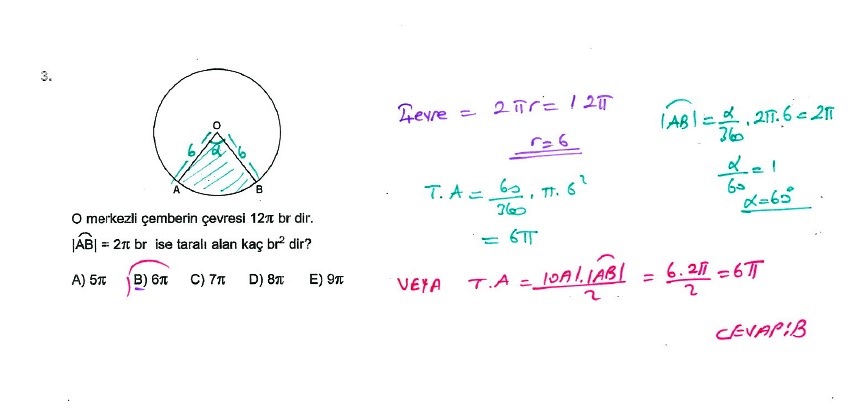 3.
O
6 α 6
A B
O merkezli çemberin çevresi 12π br dir.
|AB| = 2π br ise taralı alan kaç br² dir?
A) 5π B) 6π C) 7π D) 8π E) 9π
Çevre = 2πr = 12π
r=6
|AB| = α/360 . 2π.6 = 2π
α/60 = 1
α=60°
T.A = 60/360 . π.6²
= 6π
VEYA T.A = |OA|.|AB|/2 = 6.2π/2 = 6π
CEVAP:B